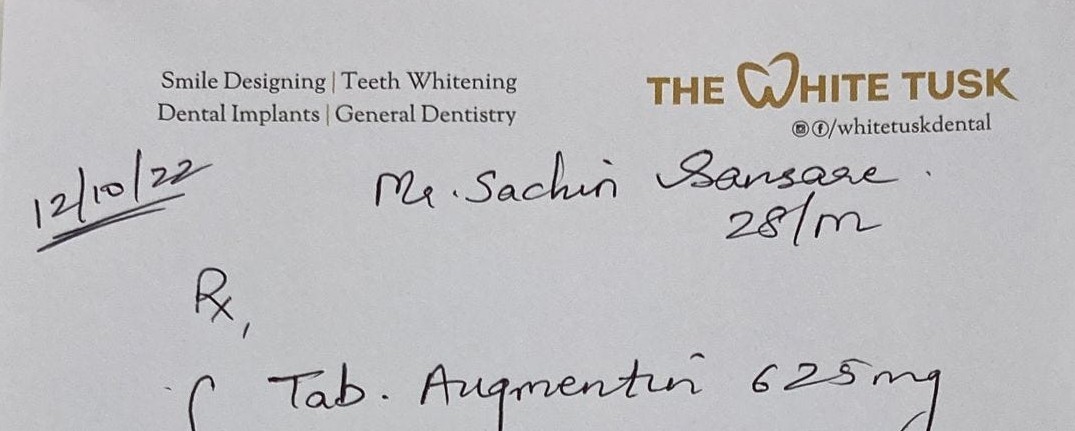 Smile Designing | Teeth Whitening
Dental Implants | General Dentistry
THE WHITE TUSK
/whitetuskdental
12/10/22
Mr. Sachin Sansare.
28/m
Rx,
Tab. Augmentin 625mg